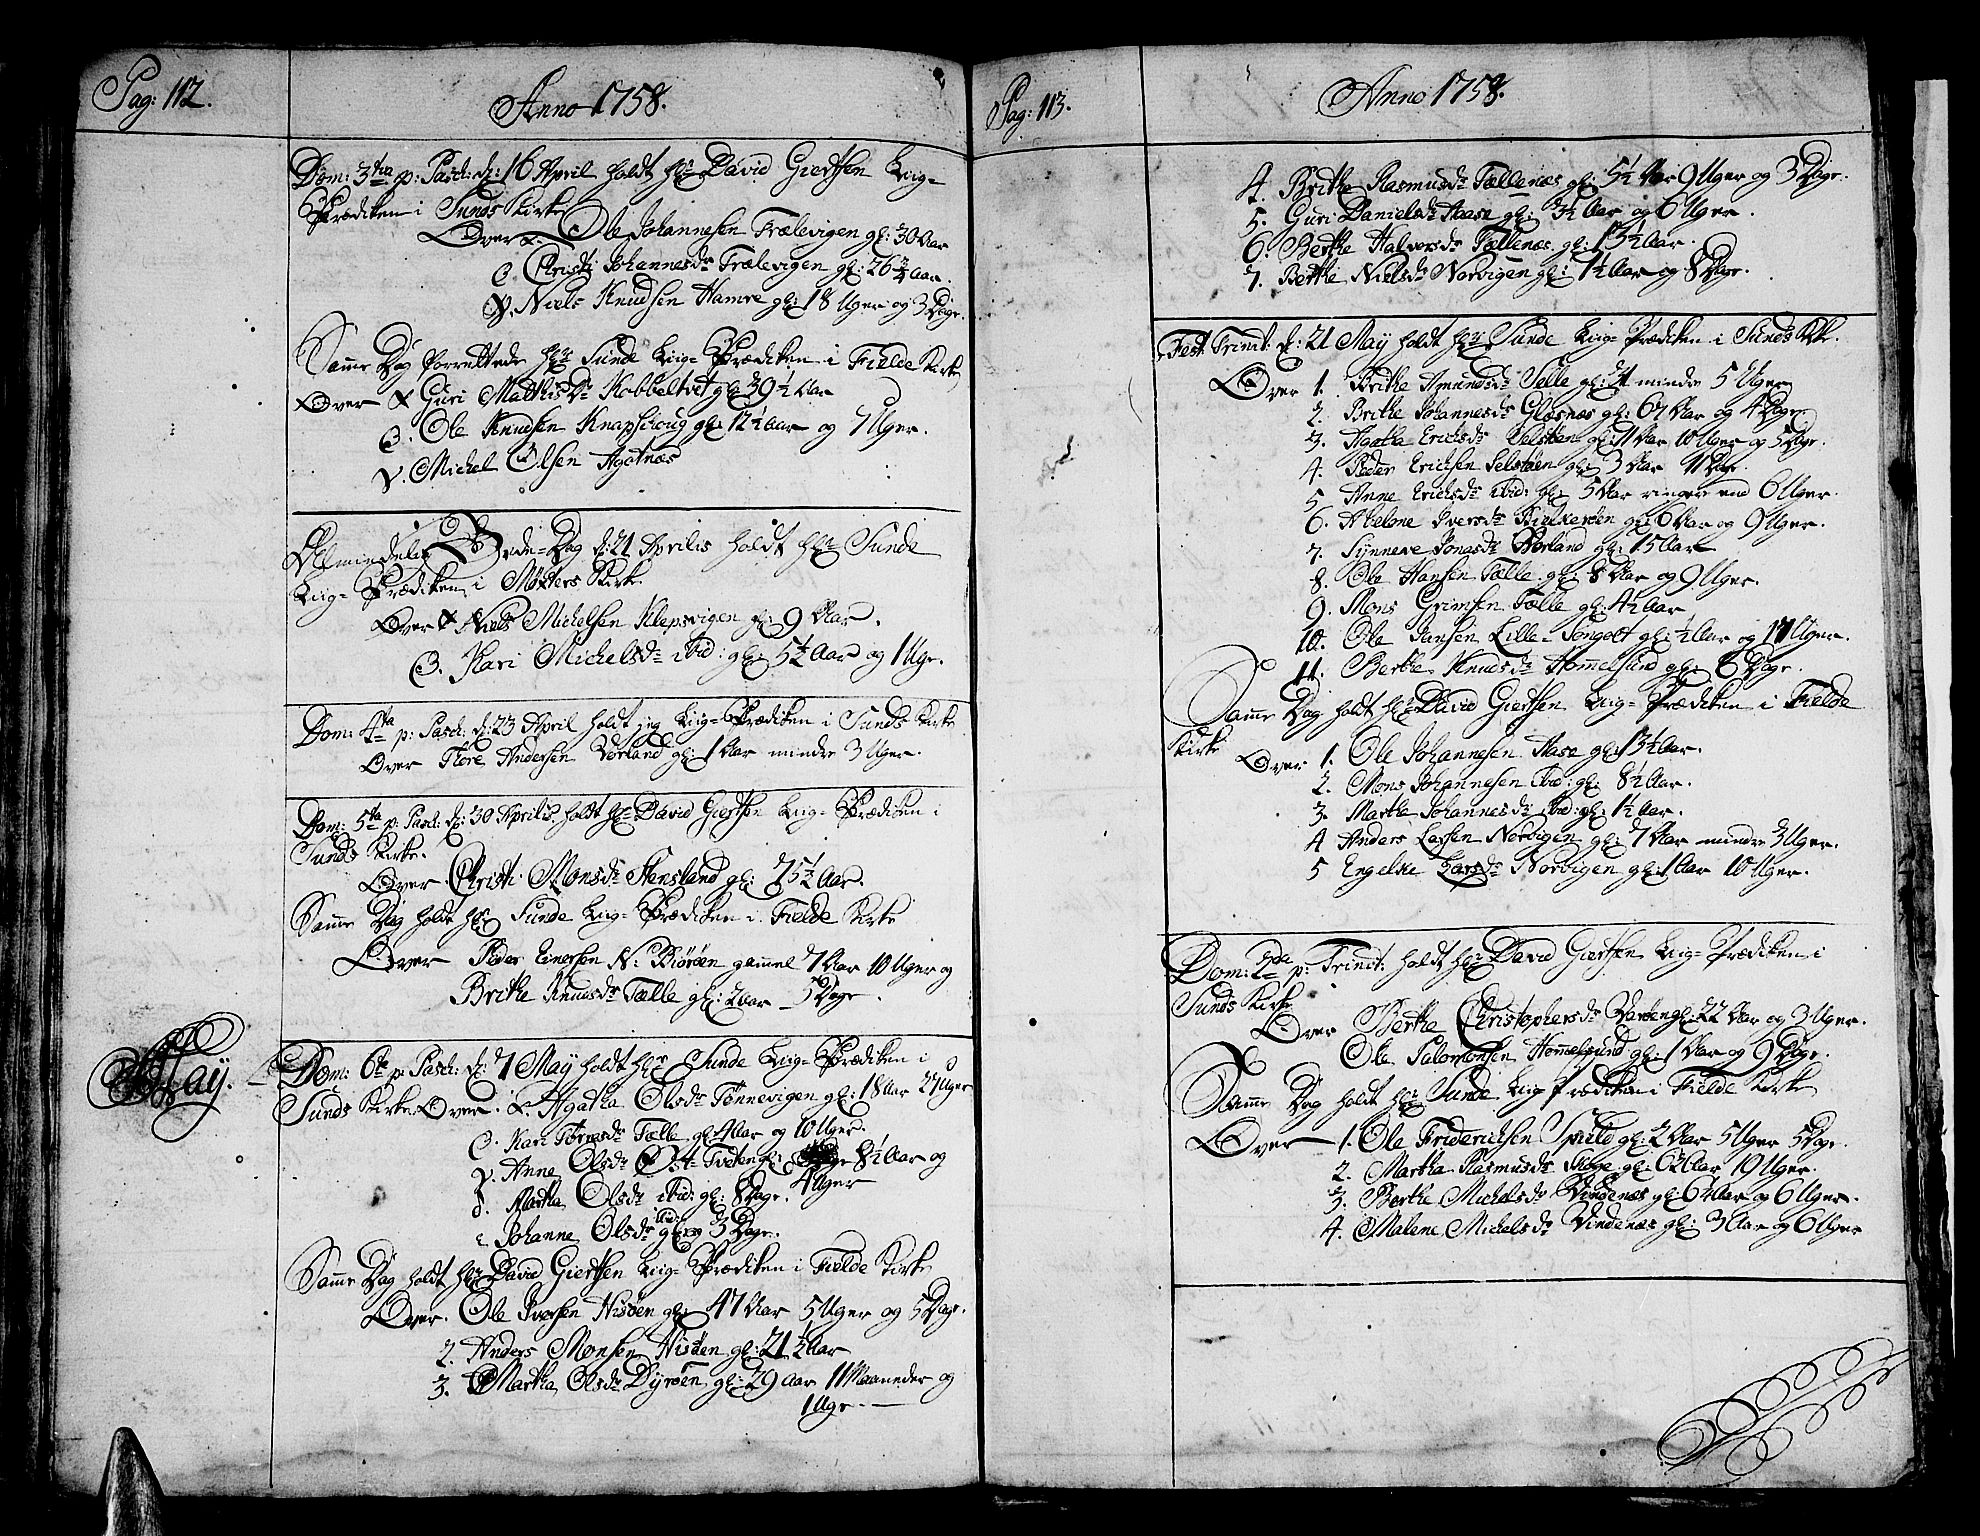 Pag: 112.
Anno 1758.
Dom: 3tia p: Pasch: d: 16 April holdt Hr David Giertsen Liig=
Prædiken i Sunds Kirke
Over α. Ole Johannesen Trælevigen gl: 30 Aar
β. Christi Johannesdr Trælevigen gl: 26¾ Aar.
γ. Niels Knudsen Hamre gl: 18 Uger og 3 Dage.
Samme Dag forrettede Hr Sunde Liig=Prædiken i Fielde Kirke
Over α Guri Mathisdr Kobbeltvet gl: 39½ Aar
β. Ole Knudsen Knapschoug gl: 12½ Aar og 7 Uger.
γ. Michel Olsen Agotnæs
Almindelig Bede=Dag d: 21 Aprilis holdt Hr Sunde
Liig=Prædiken i Møsters Kirke
Over α Niels Michelsen Klepsvigen gl: 9 Aar.
β. Kari Michelsdr ibid: gl: 5½ Aar og 1 Uge.
Dom: 4ta p: Pasch: d: 23 April holdt jeg Liig=Prædiken i Sunds Kirke
Over Tore Andersen Vorland gl: 1 Aar mindre 3 Uger.
Dom: 5ta p: Pasch: d: 30 Aprilis. holdt Hr David Giertsen Liig=Prædiken i
Sunds Kirke.
Over Christi Monsdr Steensland gl: 75½ Aar.
Samme Dag holdt Hr Sunde Liig=Prædiken i Fielde Kirke
Over Peder Einersen N: Biørøen gammel 7 Aar 10 Uger og
Brithe Knudsdr Tælle gl: 2 Aar 5 Dage.
May.
Dom: 6te p: Pasch: d: 7 May holdt Hr Sunde Liig=Prædiken i
Sunds Kirke Over. α. Agatha Olsdr Tønnevigen gl: 18 Aar 27 Uger
β. Kari Tøresdr Tælle gl: 4 Aar og 10 Uger.
γ. Anne Olsdr Øst=Tveden gl: 8½ Aar og
4 Uger
δ. Martha Olsdr ibid: gl: 8 Dage.
ε Johanne Olsdr ibid: gl: 3 Dage.
Samme Dag holdt Hr David Giertsen Liig=Prædiken i Fielde Kirke
Over. Ole Iversen Hisøen gl: 47 Aar 5 Uger og 5 Dage.
2. Anders Monsen Hisøen gl: 21½ Aar
3. Martha Olsdr Dyrøen gl: 29 Aar 11 Maaneder og
1 Uge.
Pag: 113.
Anno 1758.
4. Brithe Rasmusdr Tællenæs gl: 5½ Aar 9 Uger og 3 Dage.
5. Guri Danielsdr Aase gl: 3½ Aar og 6 Uger.
6. Berthe Halversdr Tællenæs gl: 13½ Aar.
7. Berthe Nielsdr Norvigen gl: 1½ Aar og 8 Dage.
Fest: Trinit: d: 21 May holdt Hr Sunde Liig=Prædiken i Sunds Kirke.
Over 1. Brithe Amundsdr Selle gl: 74 mindre 5 Uger
2. Brithe Johannesdr Glæsnæs gl: 67 Aar og 4 Dage
3. Agatha Erichsdr Selstøen gl: 11 Aar 10 Uger og 5 Dage.
4. Peder Erichsen Selstøen gl: 3 Aar 11 Dage.
5 Anne Erichsdr ibid: gl: 5 Aar ringere end 6 Uger.
6. Abelone Iversdr Bielkerøen gl: 6 Aar og 9 Uger.
7. Synneve Jonasdr Vorland gl: 15 Aar
8. Ole Hansen Tælle gl: 8 Aar og 9 Uger.
9. Mons Grimsen Tælle gl: 4½ Aar
10. Ole Jansen Lille=Songolt gl: ½ Aar og 17 Uger.
11. Berthe Knudsdr Hommelsund gl: 6 Dage.
Samme Dag holdt Hr David Giertsen Liig=Prædiken i Fielde
Kirke
Over 1. Ole Johannesen Aase gl: 13½ Aar.
2. Mons Johannesen ibid: gl: 8½ Aar.
3. Martha Johannesdr ibid: gl: 1½ Aar.
4 Anders Larsen Norvigen gl: 7 Aar mindre 3 Uger.
5 Engelke Larsdr Norvigen gl: 1 Aar 10 Uger.
Dom: 2da p: Trinit: holdt Hr David Giertsen Liig=Prædiken i
Sunds Kirke
Over Berthe Christophersdr Vardengl: 22 Aar og 3 Uger.
Ole Salomonsen Hommelsund gl: 1 Aar og 9 Dage.
Samme Dag holdt Hr Sunde Liig Prædiken i Fielde Kirke
Over 1. Ole Friderichsen Spield gl: 2 Aar 5 Uger 5 Dage.
2. Martha Rasmusdr Skoge gl: 62 Aar 19 Uger.
3. Berthe Michelsdr Vindenæs gl: 6½ Aar og 6 Uger.
4. Malene Michelsdr Vindenæs gl: 3 Aar og 6 Uger